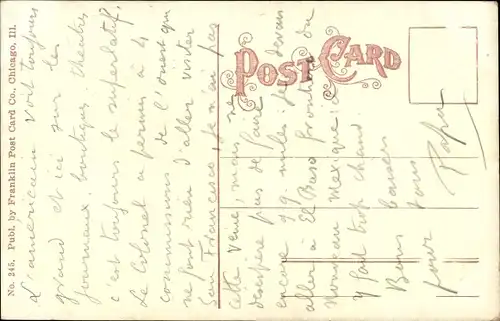 No. 245. Publ. by Franklin Post Card Co., Chicago, Ill.
POST CARD
L'américain voit toujours
grand et ici sur les
journaux, boutiques, theatres
c'est toujours le superlatif.
Le Colonel a permis à 4
commissions de l'ouest qui
ne font rien d'aller visiter
San Francisco, je n'en ai pas
cette veine, mais ne
desespère pas de faire
encore 99 milles je devais
aller à El Paso frontière du
Nouveau Mexique il
y fait trop chaud
Bons baisers
pour tous
Papa